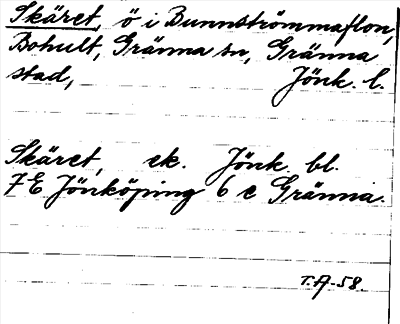 Skäret, ö i Bunnströmmaflon,
Bohult, Gränna sn, Gränna
stad, Jönk. l.
Skäret, ek. Jönk. bl.
7E Jönköping 6 e Gränna.
T.A-58.